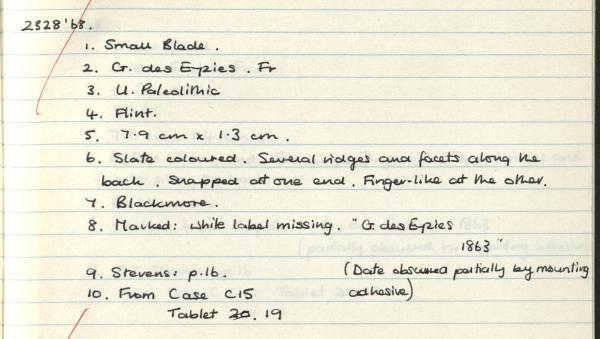 2328'68.
1. Small Blade.
2. G. des Eyzies. Fr
3. U. Paleolithic
4. Flint.
5. 7.9 cm x 1.3 cm.
6. Slate coloured. Several ridges and facets along the
back. Snapped at one end. Finger-like at the other.
7. Blackmore.
8. Marked: white label missing. "G. des Eyzies
1863"
9. Stevens: p.16. (Date obscured partially by mounting
10. From Case C15 adhesive)
Tablet 20. 19